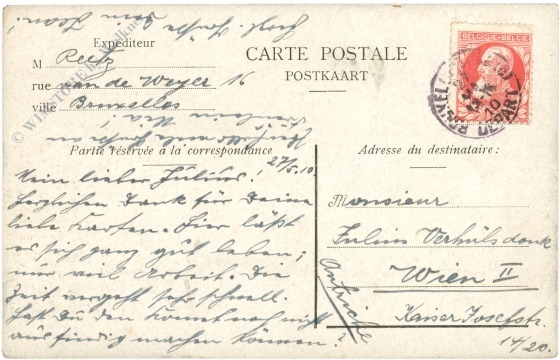 Expéditeur
M Reitz
rue van de Weyer 16
ville Bruxelles
CARTE POSTALE
POSTKAART
BELGIQUE • BELGIE
Partie réservée à la correspondance
Adresse du destinataire:
27/5.10.
Mein lieber Julius!
Herzlichen Dank für Deine
liebe Karten. Hier läßt
es sich ganz gut leben;
nur viel Arbeit. Die
Zeit vergeht sehr schnell.
Hast Du den Komet noch nicht
ausfindig machen können?
Herzl. Grüße
Dein Jean!
Monsieur
Julius Verhülsdonk
Wien II
Kaiser Josefstr.
14/20.
Autriche